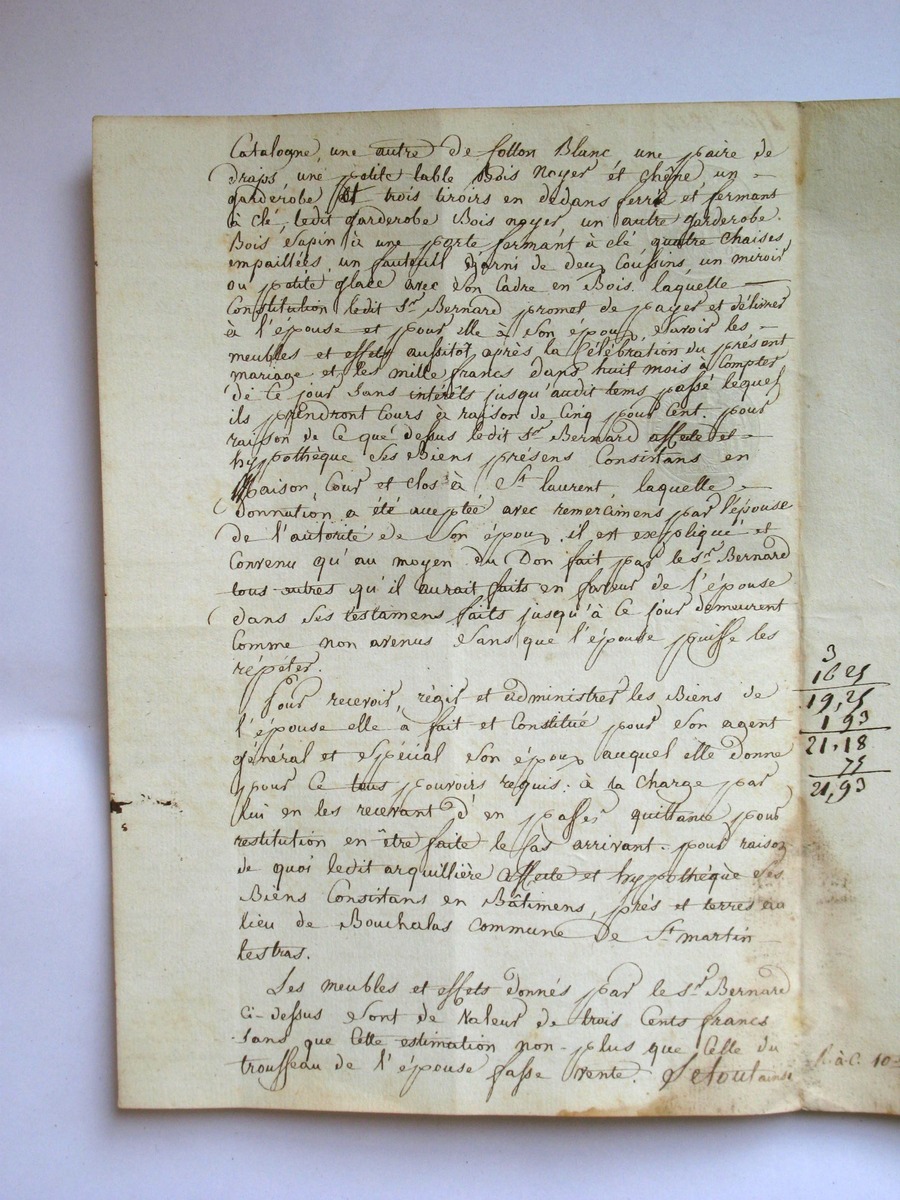 Catalogne, une autre de Cotton Blanc une paire de
draps, une petite table Bois noyer et chêne, un =
garderobe et trois tiroirs en dedans ferré et fermant
à clé, ledit garderobe Bois noyer un autre garderobe.
Bois sapin à une porte formant à clé, quatre chaises
empaillées, un fauteuil garni de deux Coussins, un miroir
ou petite glace avec son Cadre en Bois. laquelle —
Constitution ledit Sr. Bernard promet de payer et délivrer
à l'épouse et pour elle à son époux, savoir les =
meubles et effets aussitot après la Célébration du présent
mariage et les mille francs dans huit mois à Compter
de Ce jour Sans intérêts jusqu'audit tems passé lequel
ils prendront Cours à raison de Cinq pour Cent. pour
raison de Ce que dessus ledit Sr. Bernard affecte et =
hypothèque Ses Biens présens Consistans en
Maison, Cour et Clos à St. laurent, laquelle =
donnation a été acceptée avec remercimens par l'épouse
de l'autorité de Son époux. il est expliqué et
Convenu qu'au moyen du Don fait par le Sr. Bernard
tous autres qu'il aurait faits en faveur de l'épouse
dans Ses testamens faits jusqu'à Ce jour demeurent
Comme non avenus Sans que l'épouse puisse les
répéter.
Pour recevoir, régir et administrer les Biens de
l'épouse elle a fait et Constitué pour Son agent
général et Spécial Son époux auquel elle donne
pour Ce tous pouvoirs requis: à la Charge par
lui en les recevant d'en passer quittance pour
restitution en être faite le Cas arrivant. pour raison
de quoi ledit arquillière affecte et hypothèque Ses
Biens Consistans en Bâtimens, prés et terres au
lieu de Bouchalas Commune de St. martin
lestras.
Les meubles et effets donnés par le Sr. Bernard
Ci-dessus Sont de Valeur de trois Cents francs
Sans que Cette estimation non-plus que Celle du
trousseau de l'épouse fasse vente. Le tout ainsi
3
16 25
19,25
1 93
21,18
75
21,93
R. à C. 10=